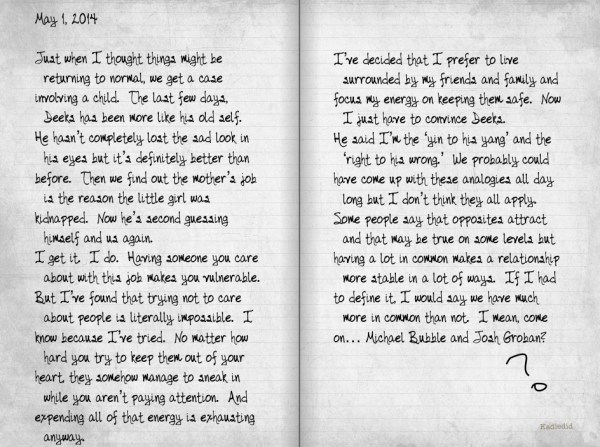 May 1, 2014
Just when I thought things might be
returning to normal, we get a case
involving a child. The last few days,
Deeks has been more like his old self.
He hasn't completely lost the sad look in
his eyes but it's definitely better than
before. Then we find out the mother's job
is the reason the little girl was
kidnapped. Now he's second guessing
himself and us again.
I get it. I do. Having someone you care
about with this job makes you vulnerable.
But I've found that trying not to care
about people is literally impossible. I
know because I've tried. No matter how
hard you try to keep them out of your
heart, they somehow manage to sneak in
while you aren't paying attention. And
expending all of that energy is exhausting
anyway.
I've decided that I prefer to live
surrounded by my friends and family and
focus my energy on keeping them safe. Now
I just have to convince Deeks.
He said I'm the 'yin to his yang' and the
'right to his wrong.' We probably could
have come up with these analogies all day
long but I don't think they all apply.
Some people say that opposites attract
and that may be true on some levels but
having a lot in common makes a relationship
more stable in a lot of ways. If I had
to define it, I would say we have much
more in common than not. I mean, come
on... Michael Bubble and Josh Groban?
?
Kadiedid.